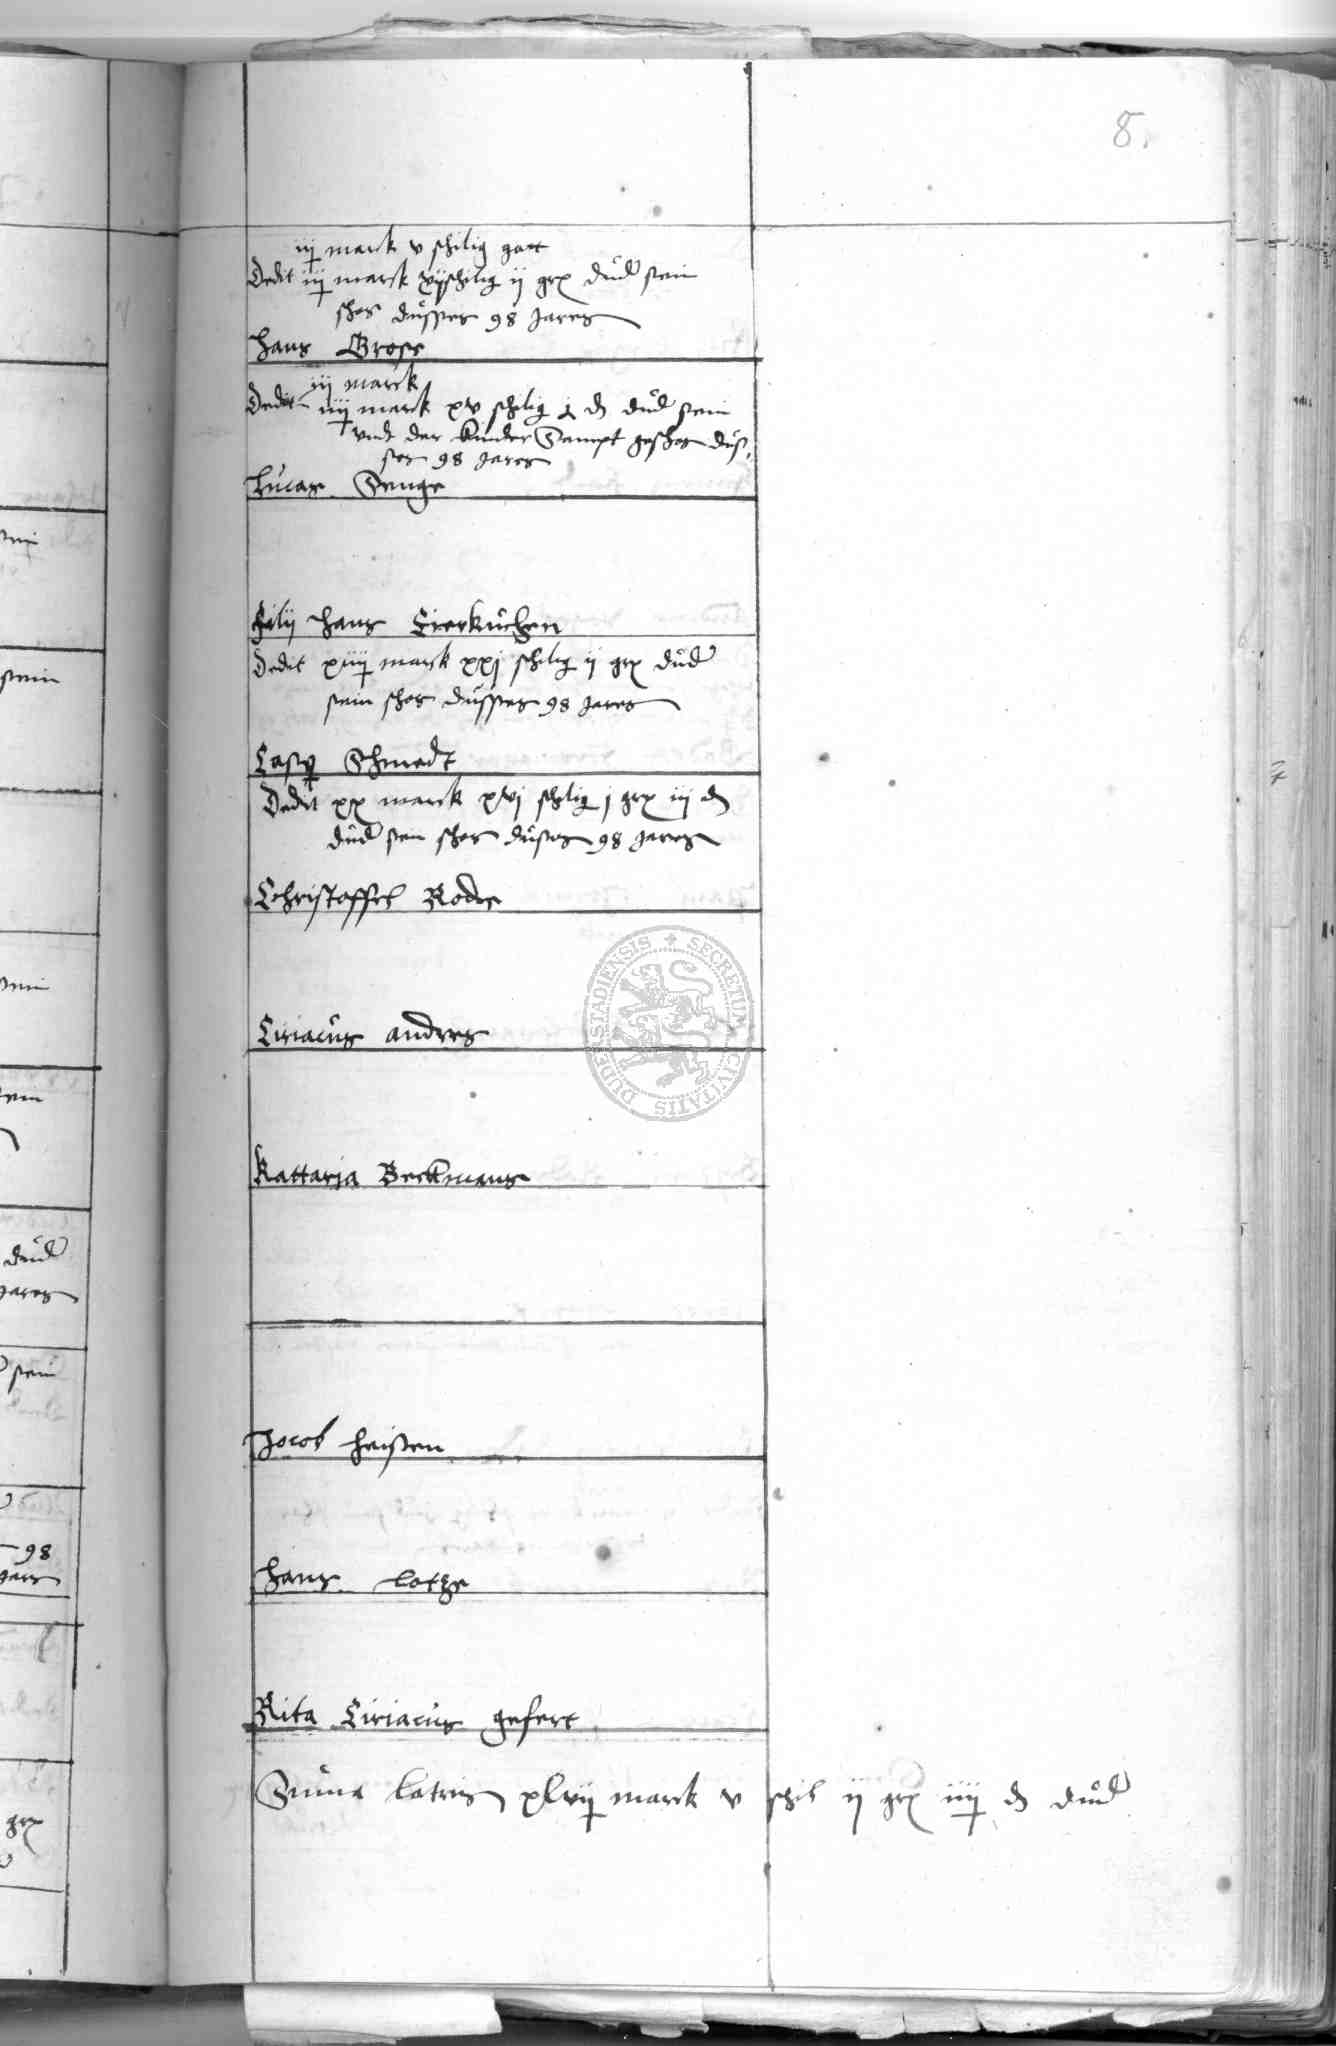 8.
iij marck v schilig gatt
Dedit iij marck xijschilig ij grx dud sein
schos dusses 98 Jares
Hans Gross
iij marck
Dedit iiij marck xv schilig d dud sein
vndt der kinder Sampt geschos dus,
ses 98 Jares
Lucas Senge
Filij Hans Eierkuchen
Dedit xiiij marck xxj schilig ij grx dud
sein schos dusses 98 Jares
Casp Schmedt
Dedit xx marck xvj schilig j grx iij d
dud sein schos duses 98 Jares
Christoffel Rode
Ciriacus andres
Kattarja Beckmans
Jocob heisen
Hans Lotze
Rita Ciriacus gefert
Suma latris xlvij marck v schil ij grx iiij d dud
SECRETUM CIVITATIS DUDERSTADIENSIS
sein
dud
Jares
sein
98
Jars
grx